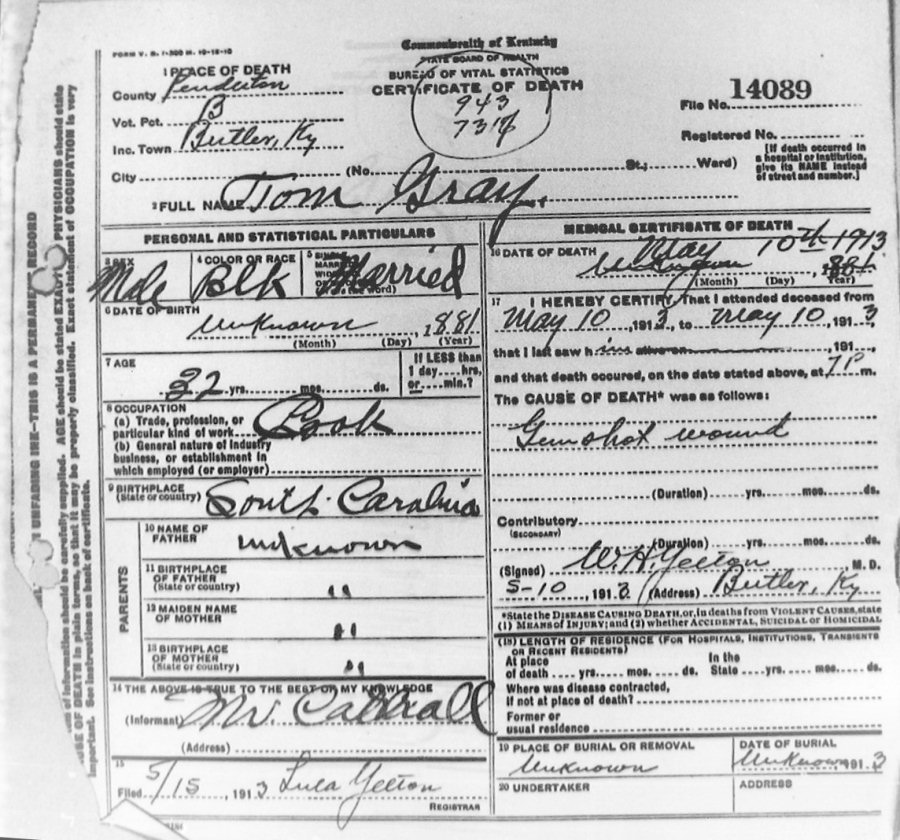 FORM V. S. 1-300 M. 10-15-10
Commonwealth of Kentucky
STATE BOARD OF HEALTH
BUREAU OF VITAL STATISTICS
CERTIFICATE OF DEATH
943
1 PLACE OF DEATH
County Pendleton
Vot. Pct. B
Inc. Town Butler, Ky
City (No. St.; Ward)
File No. 14089
Registered No.
[If death occurred in
a hospital or institution,
give its NAME instead
of street and number.]
2 FULL NAME Tom Gray
PERSONAL AND STATISTICAL PARTICULARS
3 SEX Male
4 COLOR OR RACE Blk
5 SINGLE
MARRIED Married
6 DATE OF BIRTH
Unknown, 1881
(Month) (Day) (Year)
7 AGE
32 yrs. mos. ds.
If LESS than
1 day hrs.
or min.?
8 OCCUPATION
(a) Trade, profession, or
particular kind of work Cook
(b) General nature of industry
business, or establishment in
which employed (or employer)
9 BIRTHPLACE
(State or country) South Carolina
PARENTS
10 NAME OF
FATHER unknown
11 BIRTHPLACE
OF FATHER
(State or country) "
12 MAIDEN NAME
OF MOTHER "
13 BIRTHPLACE
OF MOTHER
(State or country) "
14 THE ABOVE IS TRUE TO THE BEST OF MY KNOWLEDGE
(Informant) Mr
(Address)
15
Filed 5/15, 1913 Yelton
REGISTRAR
MEDICAL CERTIFICATE OF DEATH
16 DATE OF DEATH May 10th 1913
(Month) (Day) (Year)
17 I HEREBY CERTIFY, That I attended deceased from
May 10, 1913, to May 10, 1913
that I last saw him alive on 191
and that death occured, on the date stated above, at 7 P m.
The CAUSE OF DEATH* was as follows:
Gunshot wound
(Duration) yrs. mos. ds.
Contributory
(SECONDARY)
(Duration) yrs. mos. ds.
(Signed) W.H. Yelton, M. D.
5-10, 1913 (Address) Butler, Ky
*State the DISEASE CAUSING DEATH, or, in deaths from VIOLENT CAUSES, state
(1) MEANS OF INJURY; and (2) whether ACCIDENTAL, SUICIDAL or HOMICIDAL
(18) LENGTH OF RESIDENCE (FOR HOSPITALS, INSTITUTIONS, TRANSIENTS
OR RECENT RESIDENTS)
At place In the
of death yrs. mos. ds. State yrs. mos. ds.
Where was disease contracted,
if not at place of death?
Former or
usual residence
19 PLACE OF BURIAL OR REMOVAL
Unknown
DATE OF BURIAL
Unknown 1913
20 UNDERTAKER
ADDRESS
UNFADING INK—THIS IS A PERMANENT RECORD
information should be carefully supplied. AGE should be stated EXACTLY. PHYSICIANS should state
CAUSE OF DEATH in plain terms, so that it may be properly classified. Exact statement of OCCUPATION is very
important. See instructions on back of certificate.